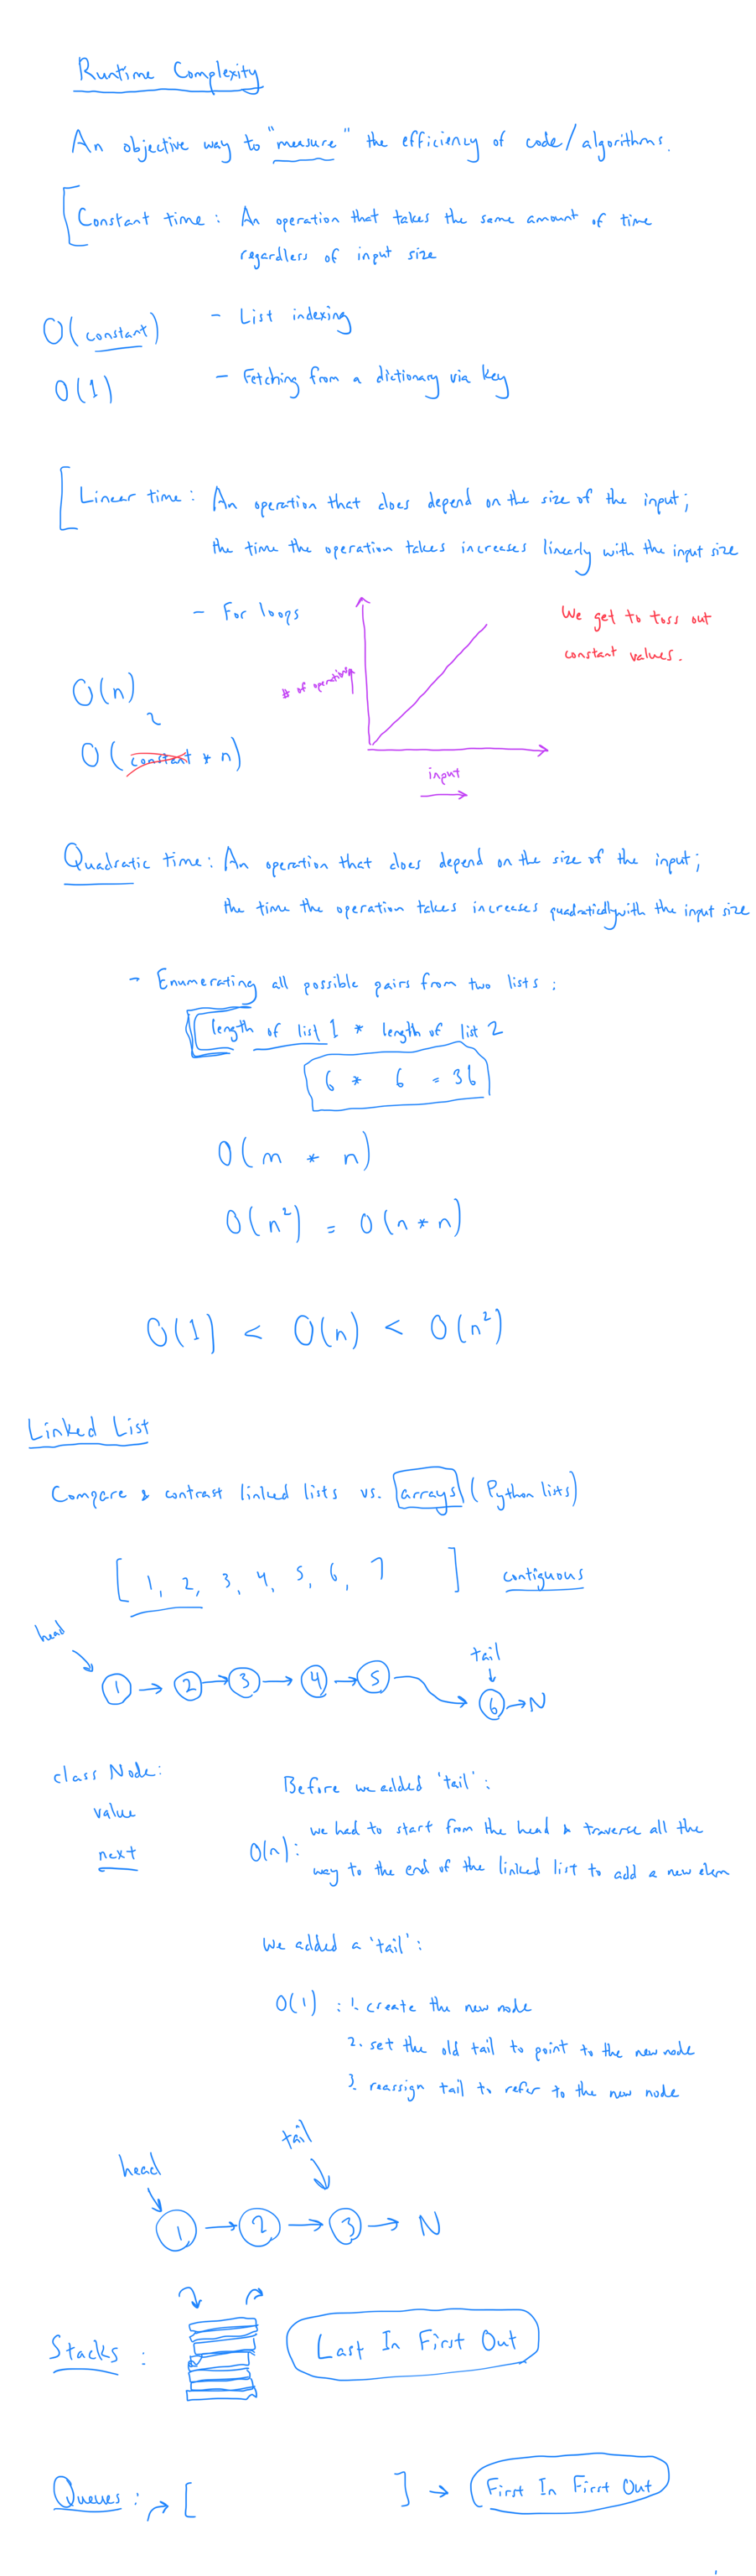 Runtime Complexity
An objective way to "measure" the efficiency of code/algorithms.
Constant time: An operation that takes the same amount of time
regardless of input size
O(constant)
- List indexing
O(1)
- Fetching from a dictionary via key
Linear time: An operation that does depend on the size of the input;
the time the operation takes increases linearly with the input size
- For loops
We get to toss out
constant values.
# of operations
O(n)
2
O(constant * n)
input
Quadratic time: An operation that does depend on the size of the input;
the time the operation takes increases quadratically with the input size
- Enumerating all possible pairs from two lists:
length of list 1 * length of list 2
6 * 6 = 36
O(m * n)
O(n²) = O(n*n)
O(1) < O(n) < O(n²)
Linked List
Compare & contrast linked lists vs. arrays (Python lists)
[1, 2, 3, 4, 5, 6, 7 ] contiguous
head
tail
1 → 2 → 3 → 4 → 5 → 6 → N
class Node:
value
next
Before we added 'tail':
O(n): we had to start from the head & traverse all the
way to the end of the linked list to add a new elem
We added a 'tail':
O(1): 1. create the new node
2. set the old tail to point to the new node
3. reassign tail to refer to the new node
tail
head
1 → 2 → 3 → N
Stacks: Last In First Out
Queues: → [ ] → First In First Out